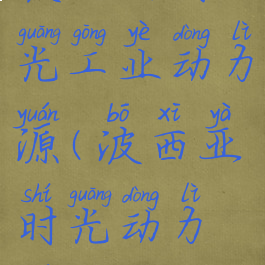 guāng gōng yè dòng lì
光工业动力
yuán bō xī yà
源(波西亚
shí guāng dòng lì
时光动力